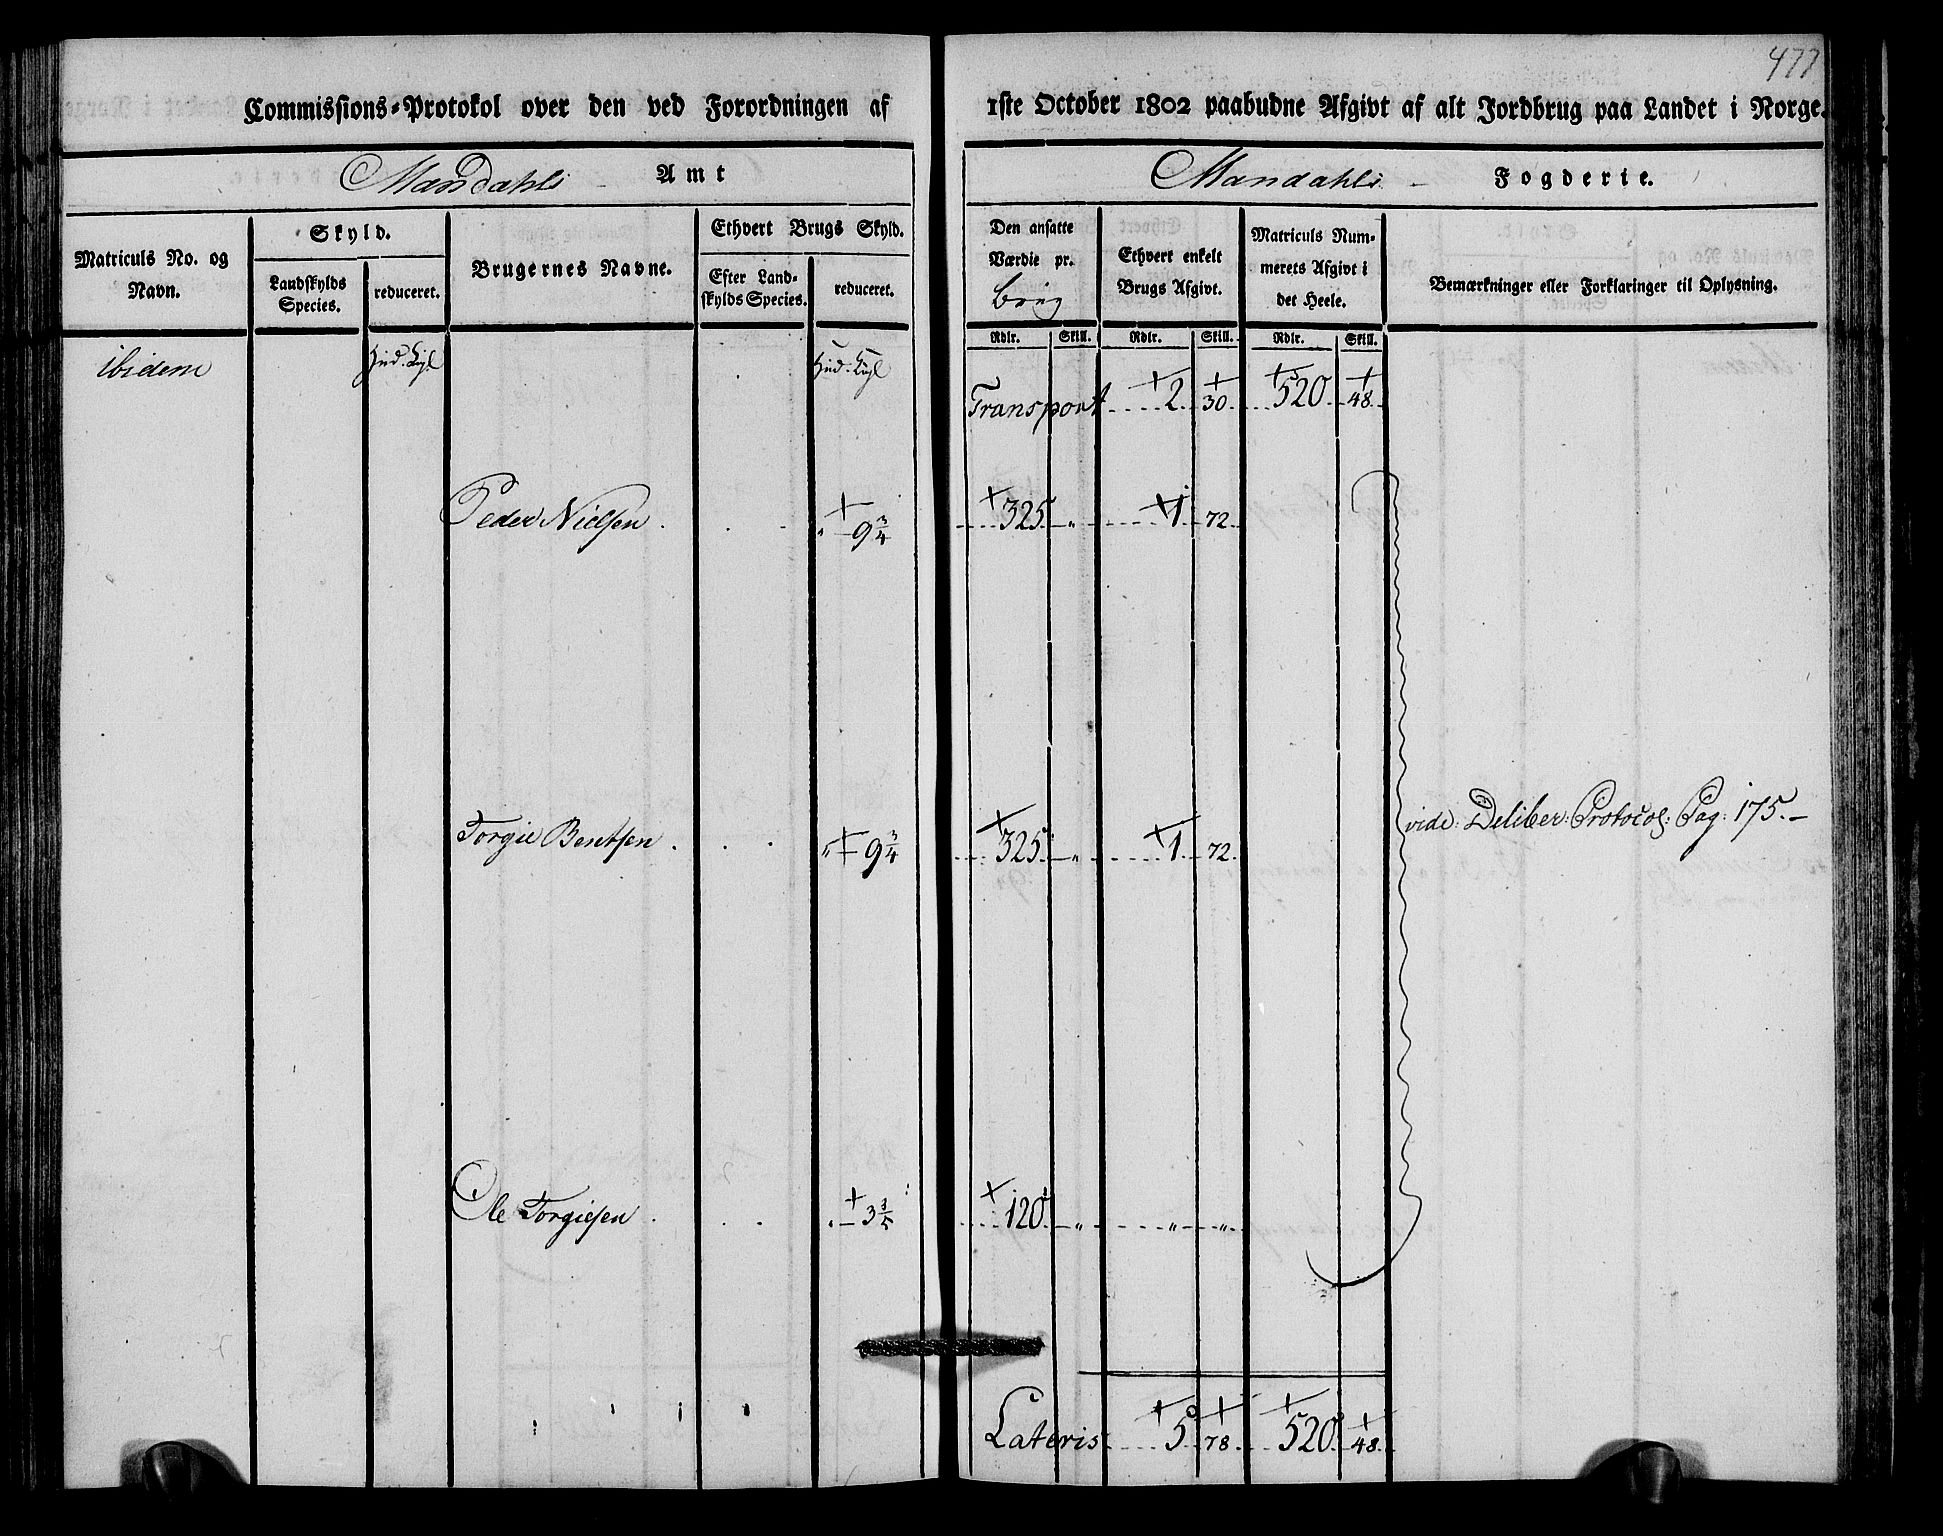 477
Commissions-Protokol over den ved Forordningen af 1ste October 1802 paabudne Afgivt af alt Jordbrug paa Landet i Norge.
Mandahls Amt
Mandahls Fogderie.
Matriculs No. og Navn.
Skyld.
Landskylds Species.
reduceret.
Brugernes Navne.
Ethvert Brugs Skyld.
Efter Landskylds Species.
reduceret.
Den ansatte Værdie pr. brug
Ethvert enkelt Brugs Afgivt.
Matriculs Nummerets Afgivt i det Heele.
Bemærkninger eller Forklaringer til Oplysning.
Rdlr. Skill. Rdlr. Skill. Rdlr. Skill.
ibidem
Transport 2 30 520 48
Peder Nielsen 9 3/4 325 „ 1 72
Torgie Bentsen „ 9 3/4 325 „ 1 72
vide: Deliber: Protocol: Pag: 175.
Ole Torgiesen 3 3/5 120 „ „ „
Lateris 5 78 520 48